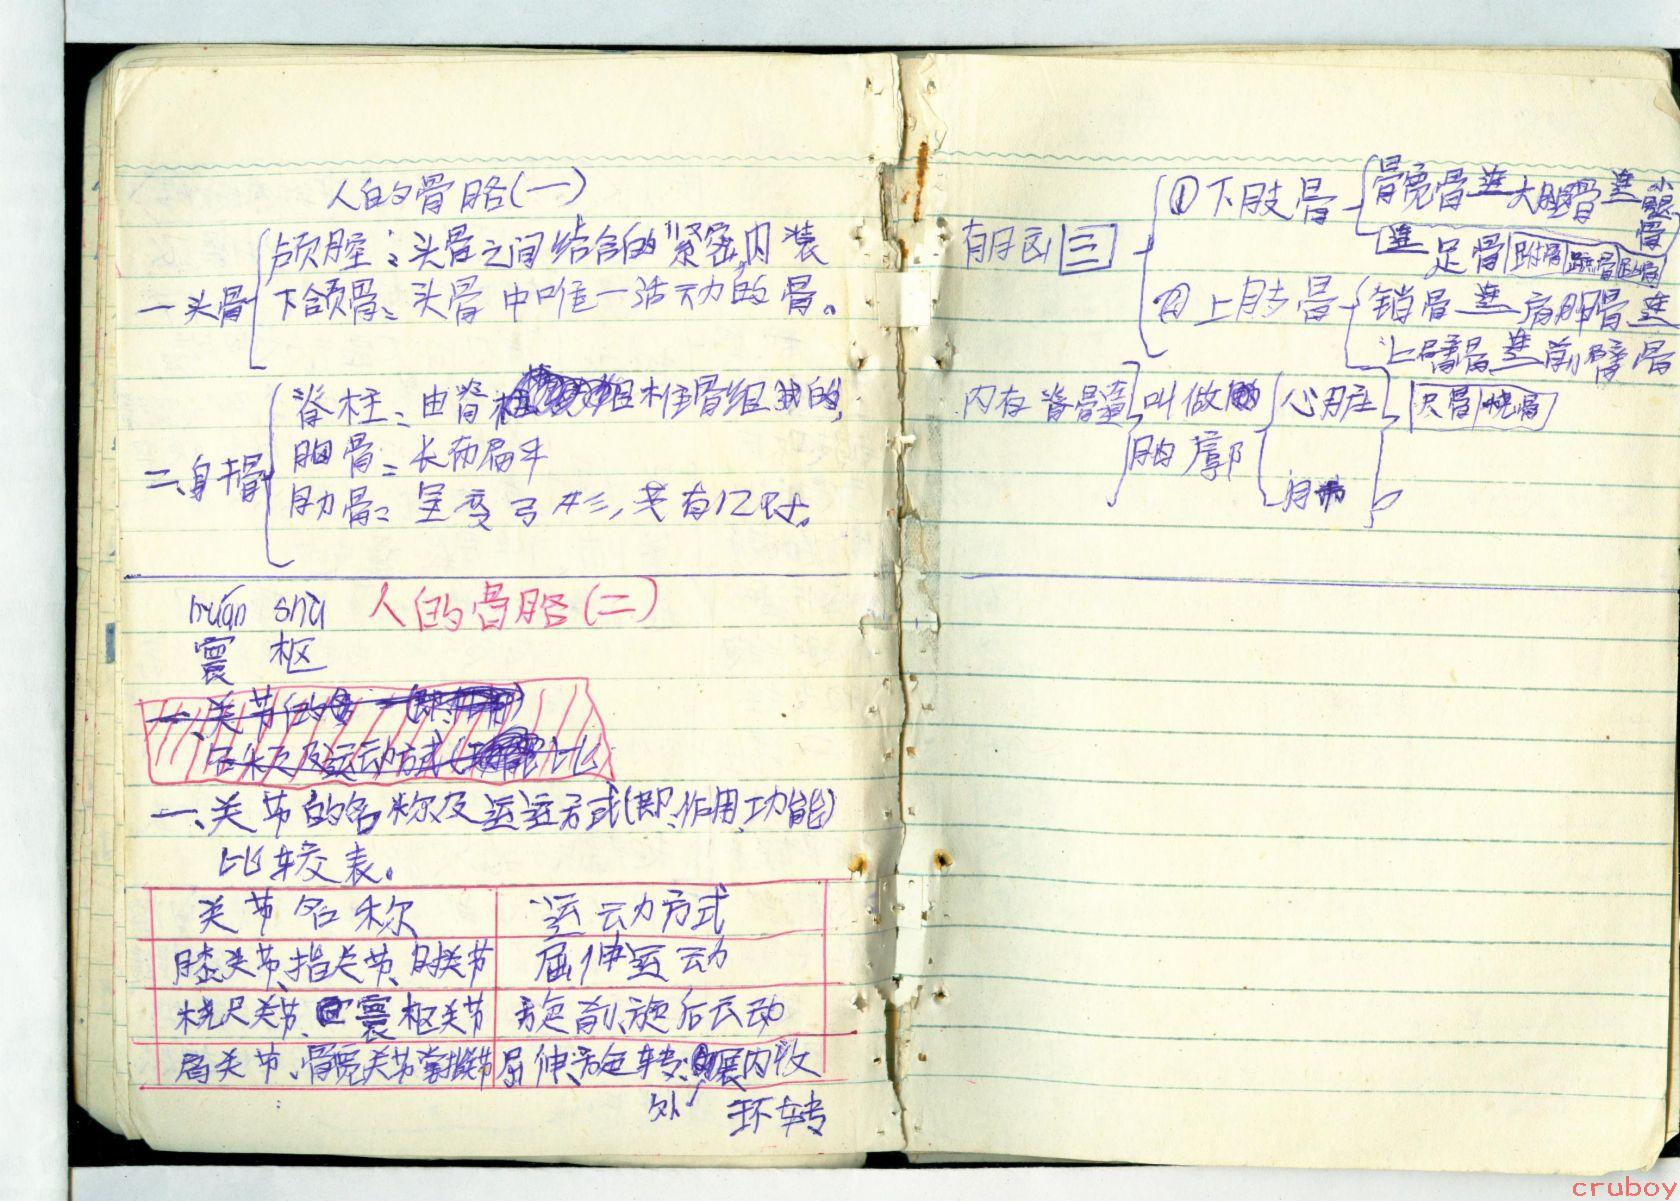 人的骨胳(一)
一头骨
颅腔:头骨之间结合的紧密,内装
下颌骨:头骨中唯一活动的骨。
二、身干骨
脊柱:由脊椎骨组成的,
胸骨:长而扁平
肋骨:呈变弓形,共有12对。
huán shū
人的骨胳(二)
寰 枢
一、关节的
名称及运动方式 比
一、关节的名称及运运方式(即、作用、功能)
比较表。
关节名称 运动方式
膝关节、指关节、肘关节 屈伸运动
桡尺关节、寰枢关节 旋前、旋后运动
肩关节、髋关节掌指关节 屈伸、旋转、外展内收
环转
三
①下肢骨
髋骨连大腿骨连小腿骨
连足骨 跗骨 蹠骨 趾骨
②上肢骨
锁骨连肩胛骨连
上臂骨连前臂骨
尺骨 桡骨
内有脊骨 叫做
胸廓
心脏
肺
cruboy